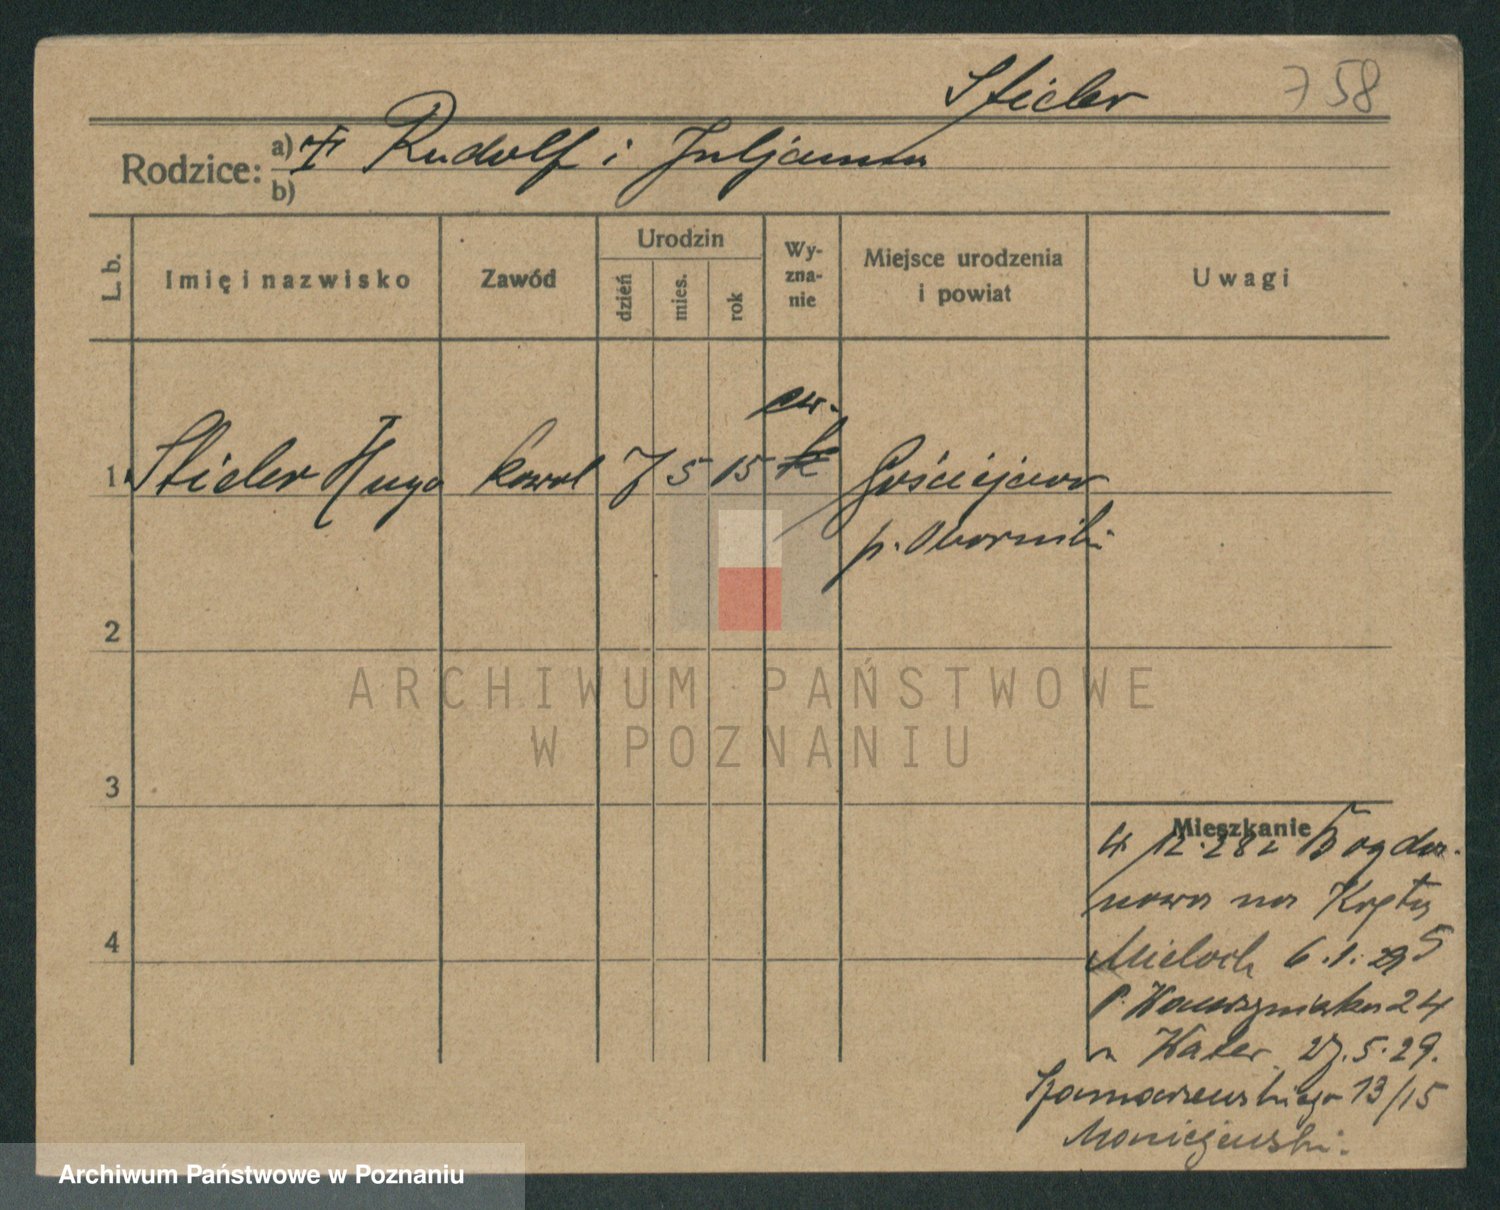 Stieler 758
Rodzice: a) Rudolf i Juljanna
b)
L. b. Imię i nazwisko Zawód Urodzin dzień mies. rok Wy-zna-nie Miejsce urodzenia i powiat Uwagi
ew.
1 Stieler Hugo kowal 7 5 15 k Gościejewo
p. Oborniki
2
ARCHIWUM PAŃSTWOWE
W POZNANIU
3
Mieszkanie
4. 12. 28 z Bogda-
nowa na Krętą 5
Mieloch 6.1.29
P. Wawrzyniaka 24
27.5.29.
Szamarzewskiego 13/15
4
Archiwum Państwowe w Poznaniu